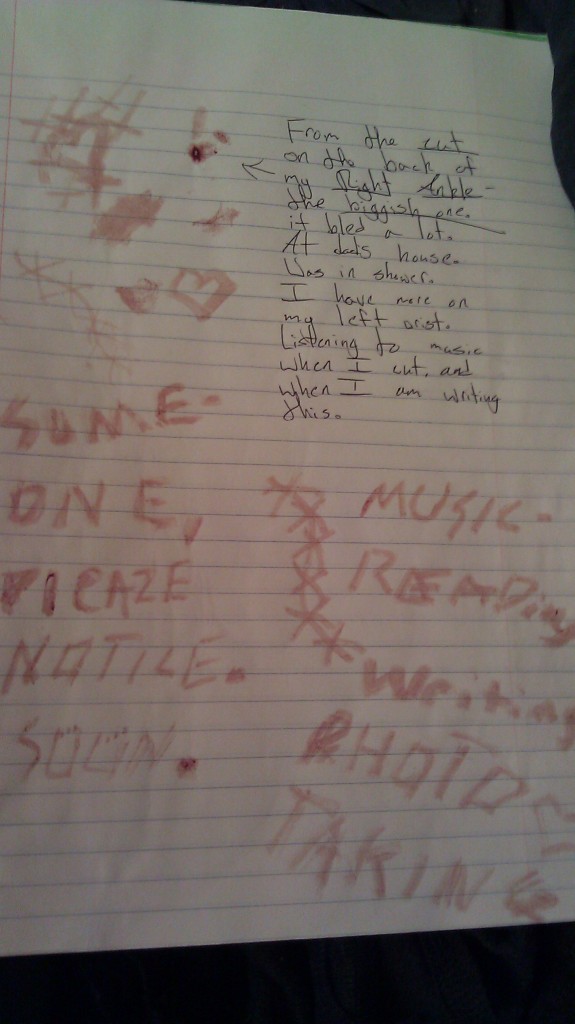 From the cut
on the back of
my Right Ankle -
the biggish one.
it bled a lot.
At dads house.
Was in shower.
I have more on
my left wrist.
Listening to music
when I cut, and
when I am writing
this.
SOME-
ONE,
PLEAZE
NOTICE.
SOON.
MUSIC-
READing
Writing
PHOTO
TAKING